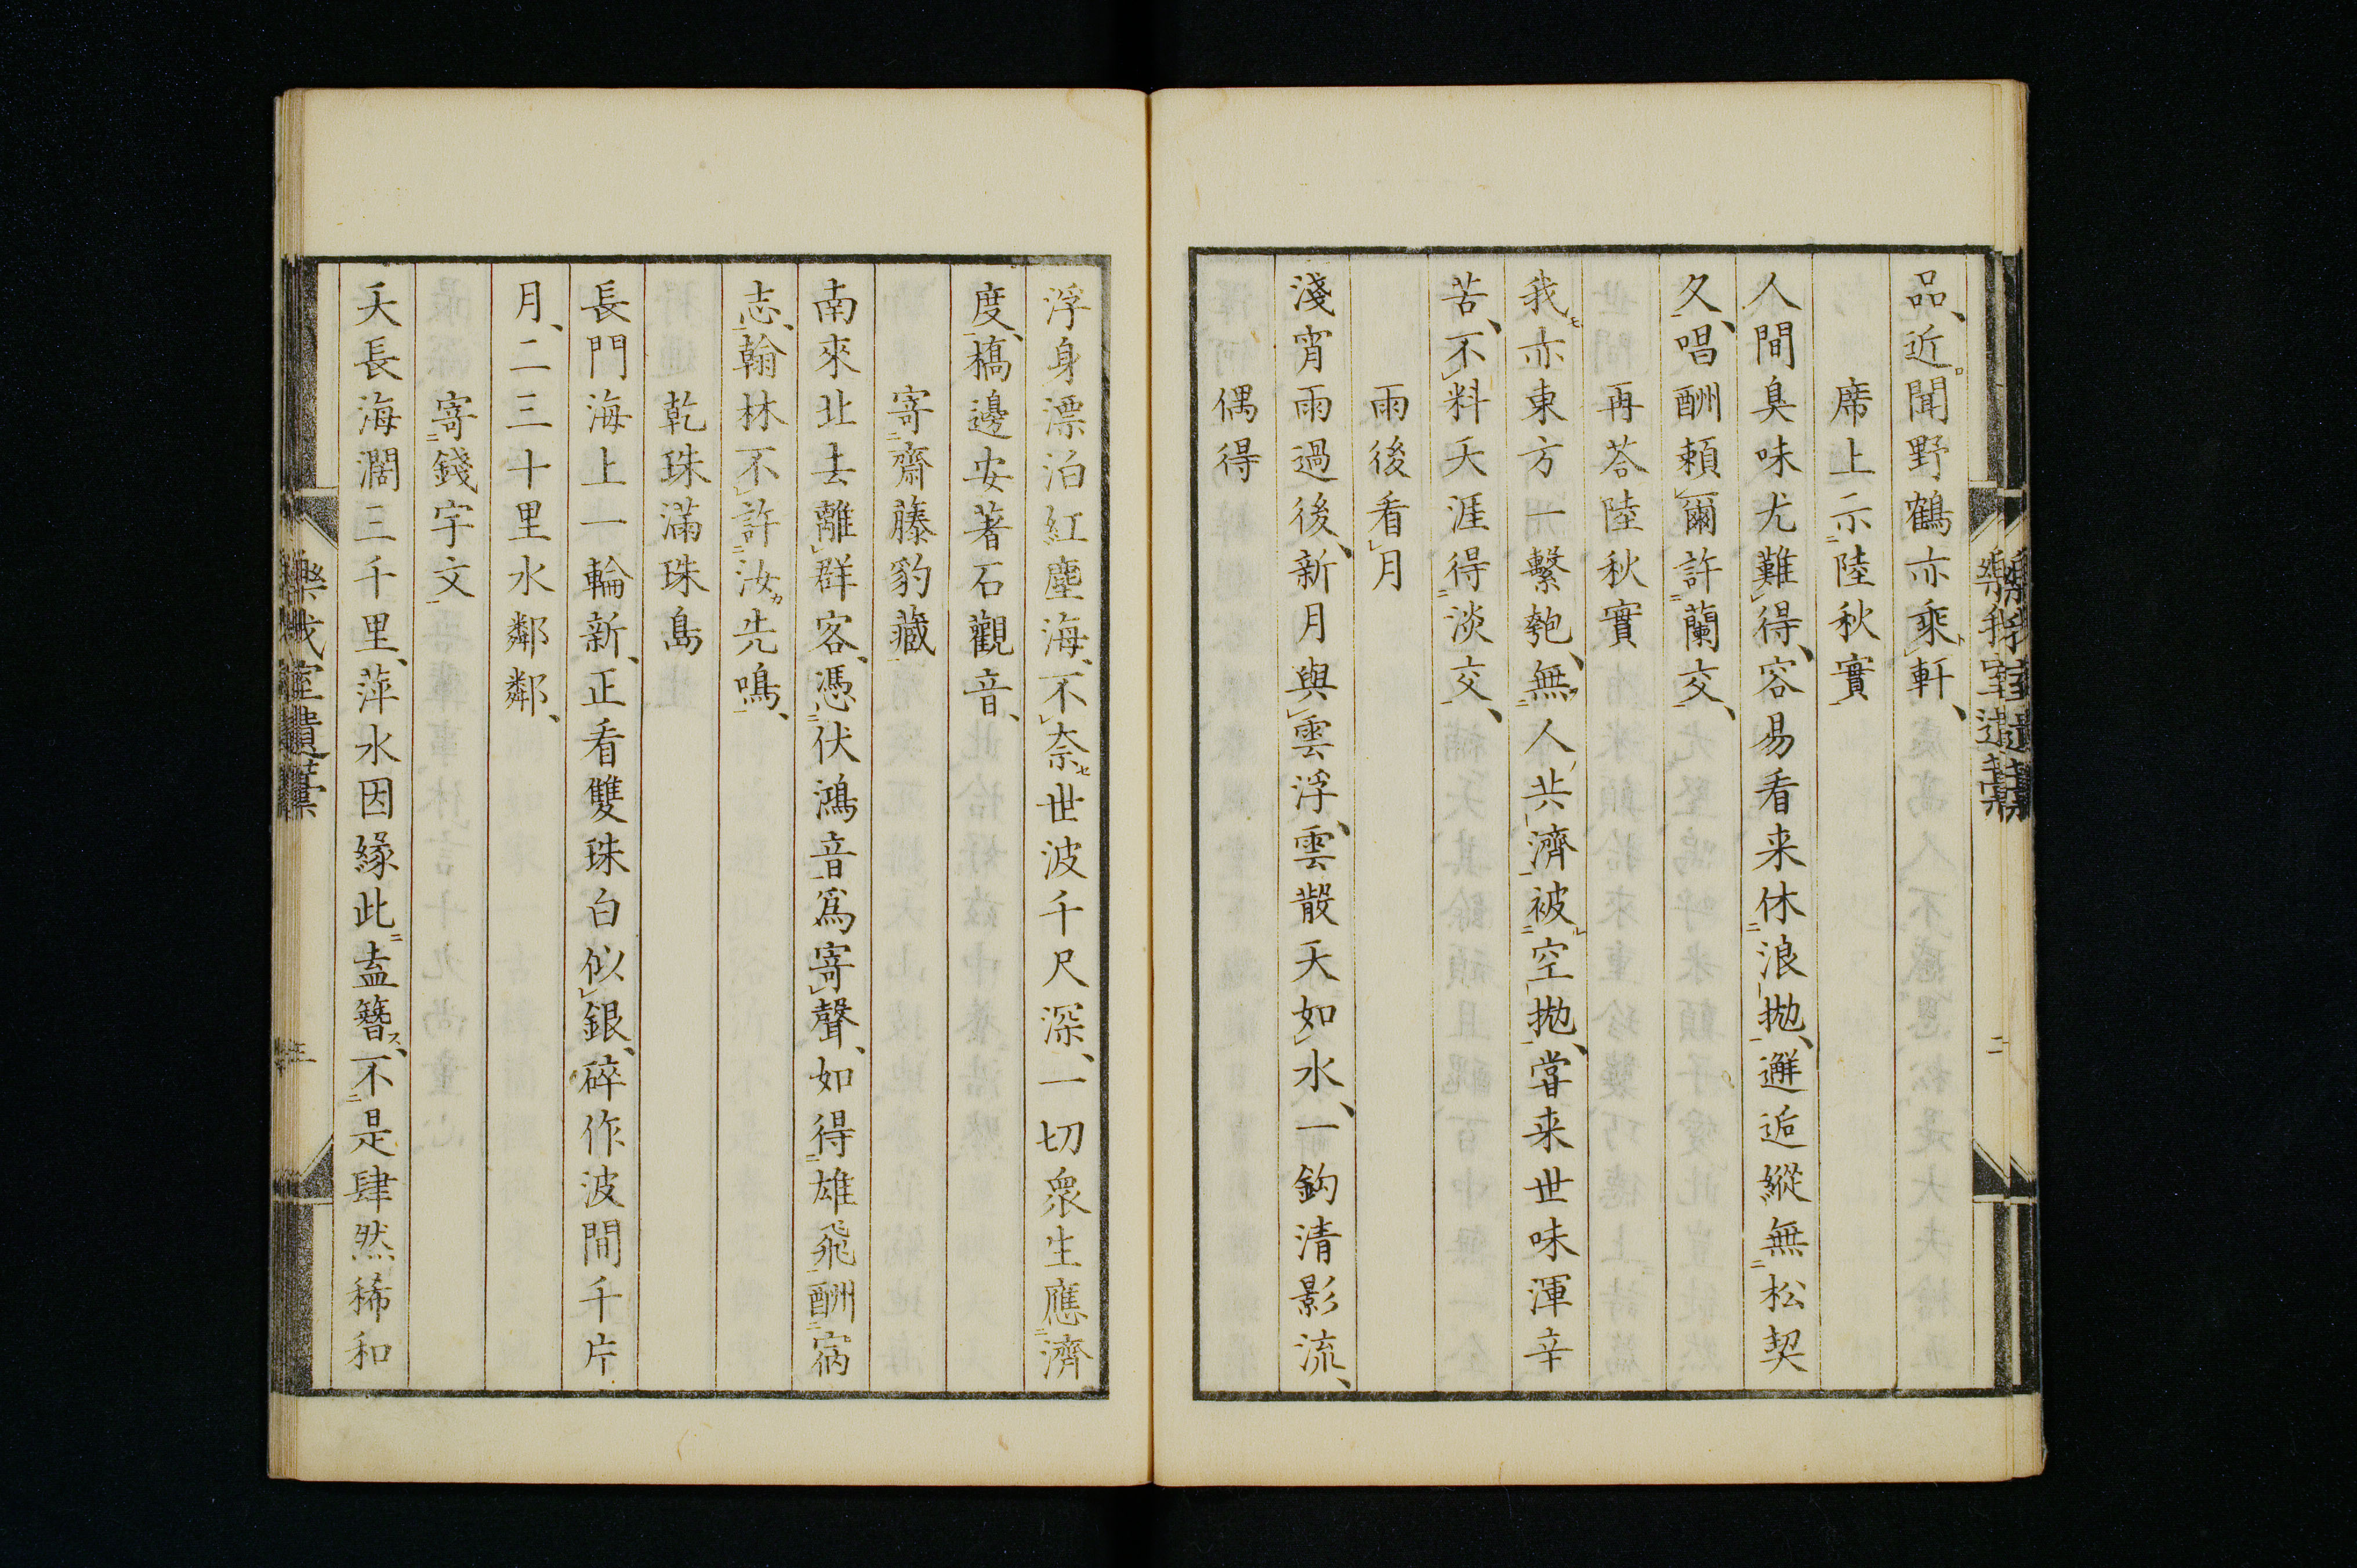 品、近聞野鶴亦乘軒、
席上示陸秋實
人間臭味尤難得、容易看来休浪拋、邂逅縱無松契
久、唱酬頼爾許蘭交、
再荅陸秋實
我亦東方一繫匏、無人共濟被空拋、嘗来世味渾辛
苦、不料天涯得淡交、
雨後看月
淺宵雨過後、新月與雲浮、雲散天如水、一鈎清影流、
偶得
二
浮身漂泊紅塵海、不奈世波千尺深、一切衆生應濟
度、橋邊安著石觀音、
寄齋藤豹藏
南來北去離群客、憑伏鴻音為寄聲、如得雄飛酬宿
志、翰林不許汝先鳴、
乾珠滿珠島
長門海上一輪新、正看雙珠白似銀、碎作波間千片
月、二三十里水鄰鄰、
寄錢宇文
天長海濶三千里、萍水因緣此盍簪、不是肆然稀和
室遺藁
三